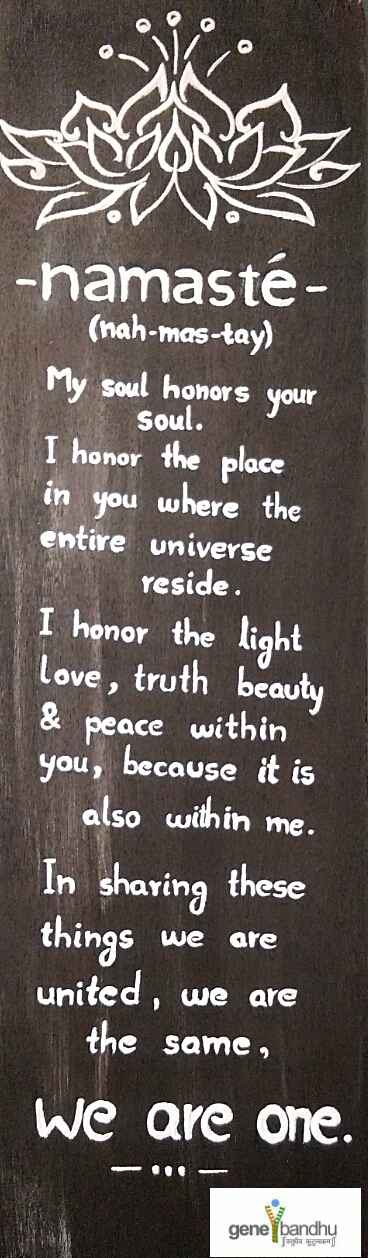 -namasté-
(nah-mas-tay)
My soul honors your
soul.
I honor the place
in you where the
entire universe
reside.
I honor the light
love, truth beauty
& peace within
you, because it is
also within me.
In sharing these
things we are
united, we are
the same,
We are one.
gene bandhu